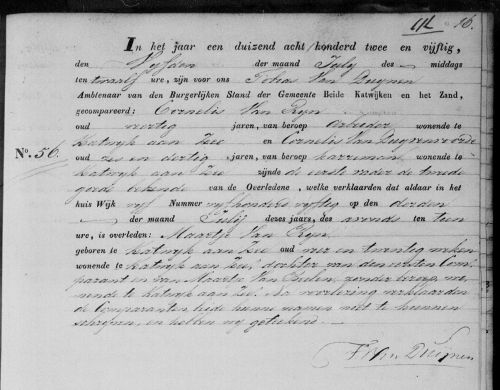 16.
In het jaar een duizend acht honderd twee en vijftig,
den Vyfden der maand July des middags
ten twaalf ure, zijn voor ons Tobias Van Duynen
Ambtenaar van den Burgerlijken Stand der Gemeente Beide Katwijken en het Zand,
gecompareerd: Cornelis Van Ryn
oud veertig jaren, van beroep arbeider wonende te
Katwyk aan Zee en Cornelis Van Duyvenvoorde
No. 56.
oud zes en dertig jaren, van beroep karreman wonende te
Katwyk aan Zee zijnde de eerste vader de tweede
goede bekende van de Overledene, welke verklaarden dat aldaar in het
huis Wijk vyf Nummer vyfhonderd vyftig op den derden
der maand July dezes jaars, des avonds ten tien
ure, is overleden: Maartje Van Ryn
geboren te Katwyk aan Zee oud vier en twintig weken
wonende te Katwyk aan Zee, dochter van den eersten Com-
parant en van Maartje Van Beelen, zonder beroep wo-
nende te Katwyk aan Zee. Na voorlezing verklaarden
de Comparanten beide hunne namen niet te kunnen
schryven, en hebben wy getekend.
T Van Duijnen